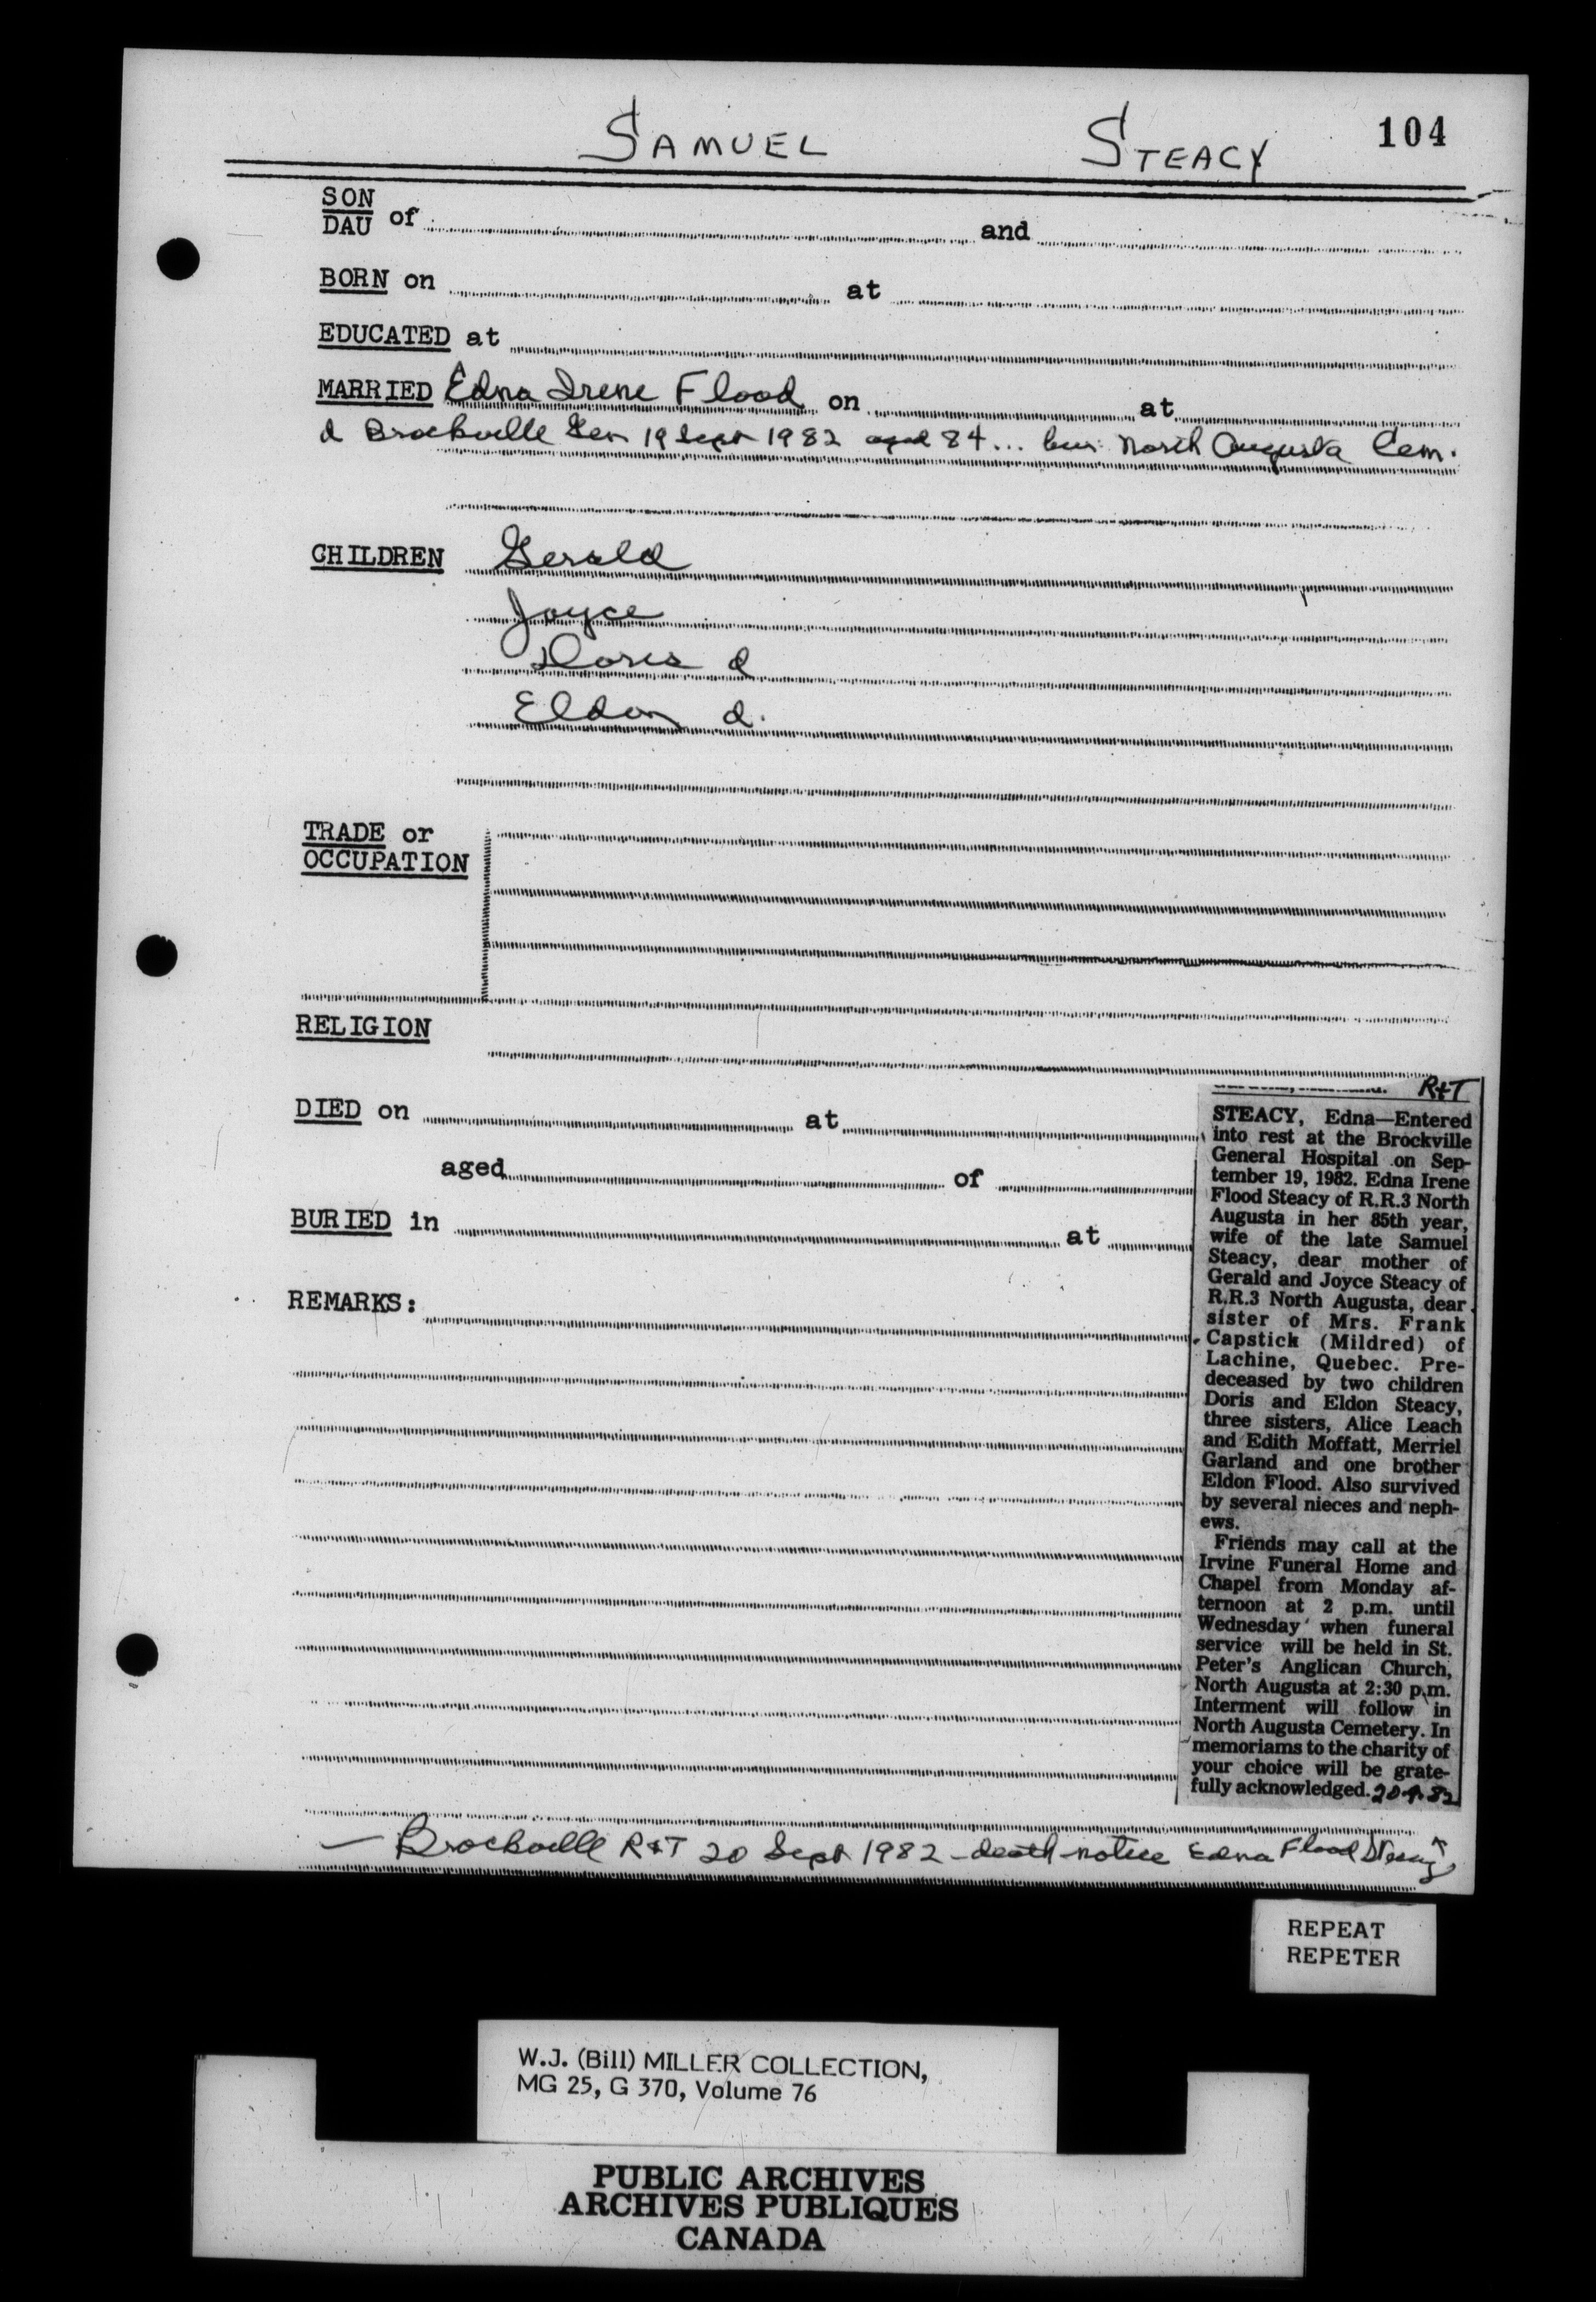 SAMUEL STEACY 104
SON
DAU of and
BORN on at
EDUCATED at
MARRIED Edna Irene Flood on at
d Brockville Gen 19 Sept 1982 aged 84... bur. North Augusta Cem.
CHILDREN Gerald
Joyce
Doris d
Eldon d.
TRADE or
OCCUPATION
RELIGION
DIED on at
aged of
BURIED in at
REMARKS:
R+T
STEACY, Edna—Entered
into rest at the Brockville
General Hospital on Sep-
tember 19, 1982. Edna Irene
Flood Steacy of R.R.3 North
Augusta in her 85th year,
wife of the late Samuel
Steacy, dear mother of
Gerald and Joyce Steacy of
R.R.3 North Augusta, dear
sister of Mrs. Frank
Capstick (Mildred) of
Lachine, Quebec. Pre-
deceased by two children
Doris and Eldon Steacy,
three sisters, Alice Leach
and Edith Moffatt, Merriel
Garland and one brother
Eldon Flood. Also survived
by several nieces and neph-
ews.
Friends may call at the
Irvine Funeral Home and
Chapel from Monday af-
ternoon at 2 p.m. until
Wednesday when funeral
service will be held in St.
Peter's Anglican Church,
North Augusta at 2:30 p.m.
Interment will follow in
North Augusta Cemetery. In
memoriams to the charity of
your choice will be grate-
fully acknowledged. 20.9.82
— Brockville R+T 20 Sept 1982 - death notice Edna Flood Steacy
REPEAT
REPETER
W.J. (Bill) MILLER COLLECTION,
MG 25, G 370, Volume 76
PUBLIC ARCHIVES
ARCHIVES PUBLIQUES
CANADA